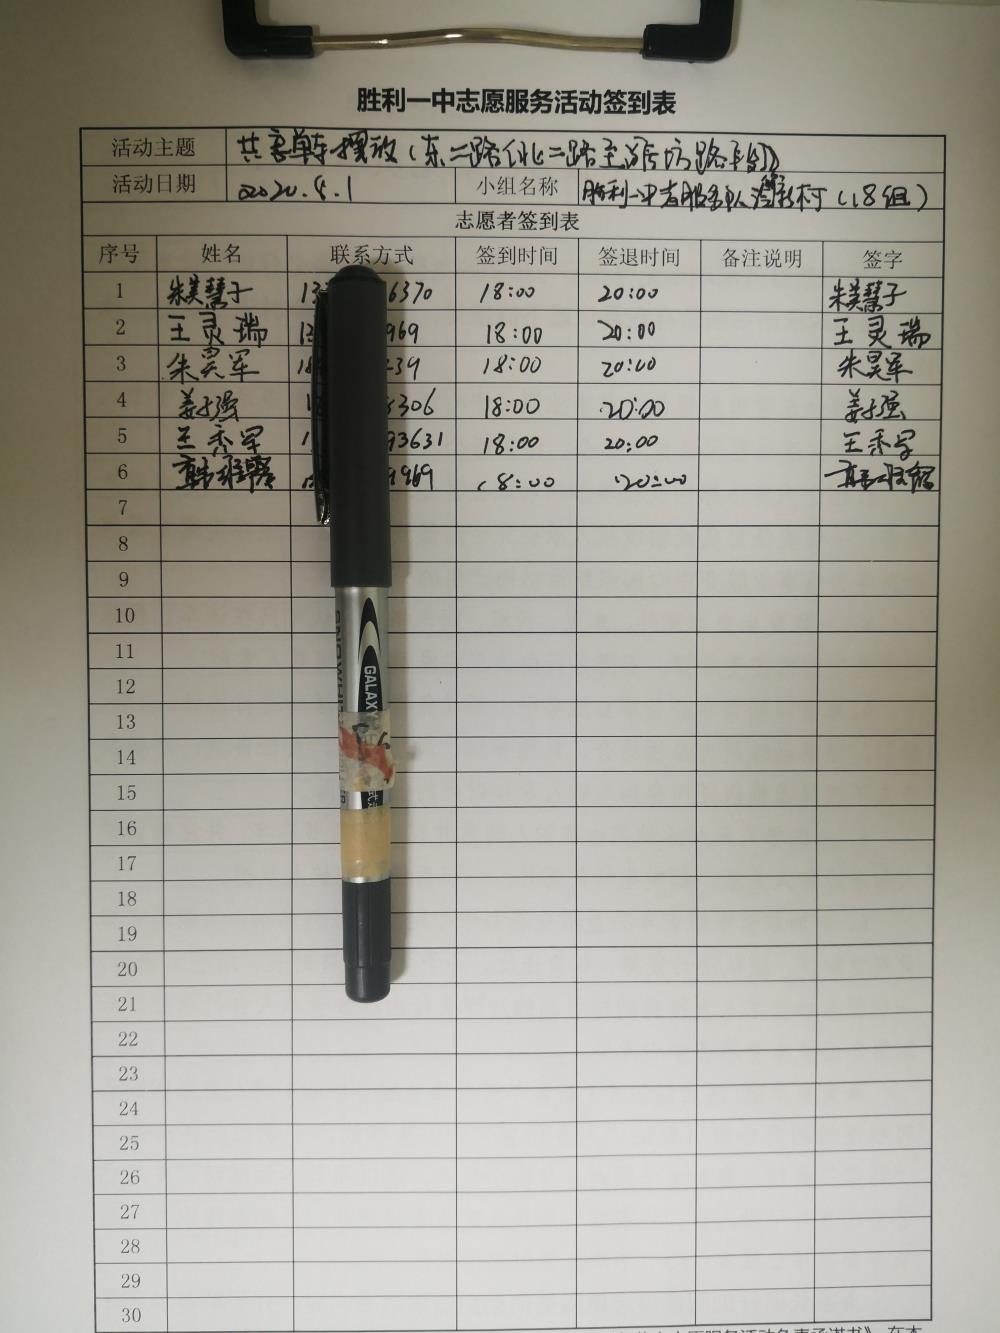 胜利一中志愿服务活动签到表
活动主题 共享单车摆放(东二路(北二路至
活动日期 2020.4.1 小组名称 胜利一中 村(18组)
志愿者签到表
序号 姓名 联系方式 签到时间 签退时间 备注说明 签字
1 朱美慧子 13 6370 18:00 20:00 朱美慧子
2 王灵瑞 13 969 18:00 20:00 王灵瑞
3 朱昊军 18 39 18:00 20:00 朱昊军
4 姜强 1 306 18:00 20:00 姜强
5 王秀军 1 93631 18:00 20:00 王秀军
6 1 9969 18:00 20:00
7
8
9
10
11
12
13
14
15
16
17
18
19
20
21
22
23
24
25
26
27
28
29
30
GALAXY